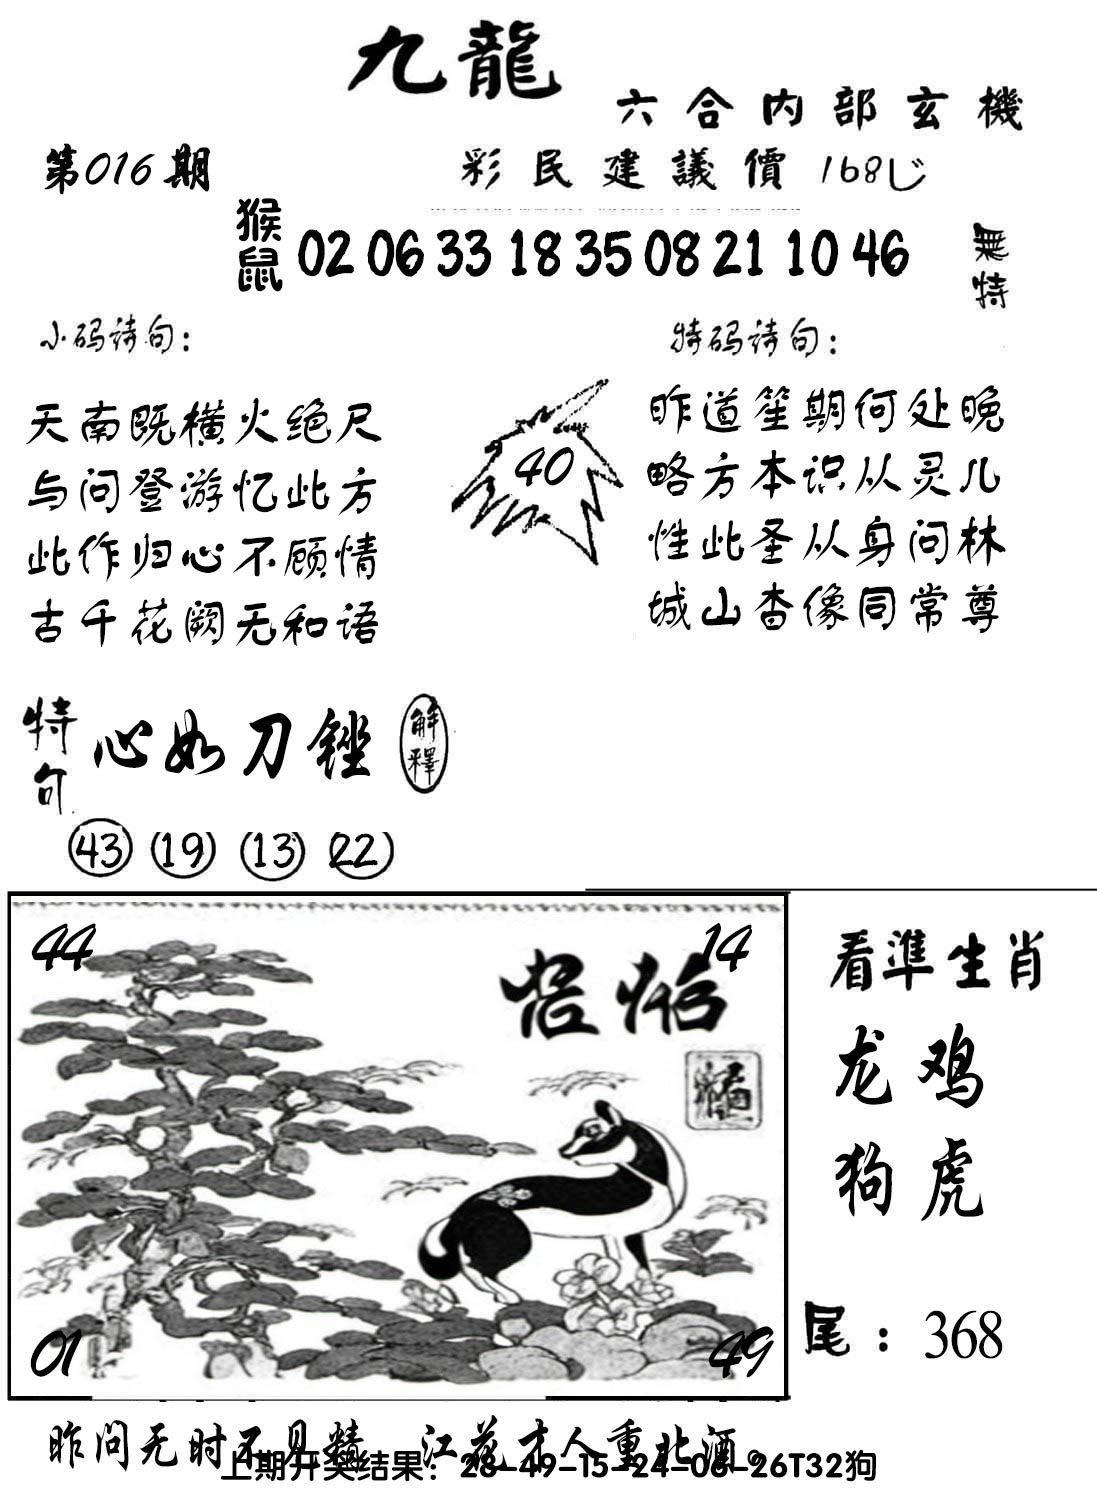 九龍
六合内部玄機
第016期
彩民建議價168
猴鼠
02 06 33 18 35 08 21 10 46
無特
小码诗句：
天南既横火绝尺
与问登游忆此方
此作归心不顾情
古千花阙无和语
40
特码诗句：
昨道笙期何处晚
略方本识从灵儿
性此圣从身问林
城山杳像同常尊
特句
心如刀锉
解釋
43 19 13 22
44
14
01
49
看準生肖
龙鸡
狗虎
尾：368
昨问无时不见精 江花才人重北酒。
上期开奖结果：28-49-15-24-06-26T32狗